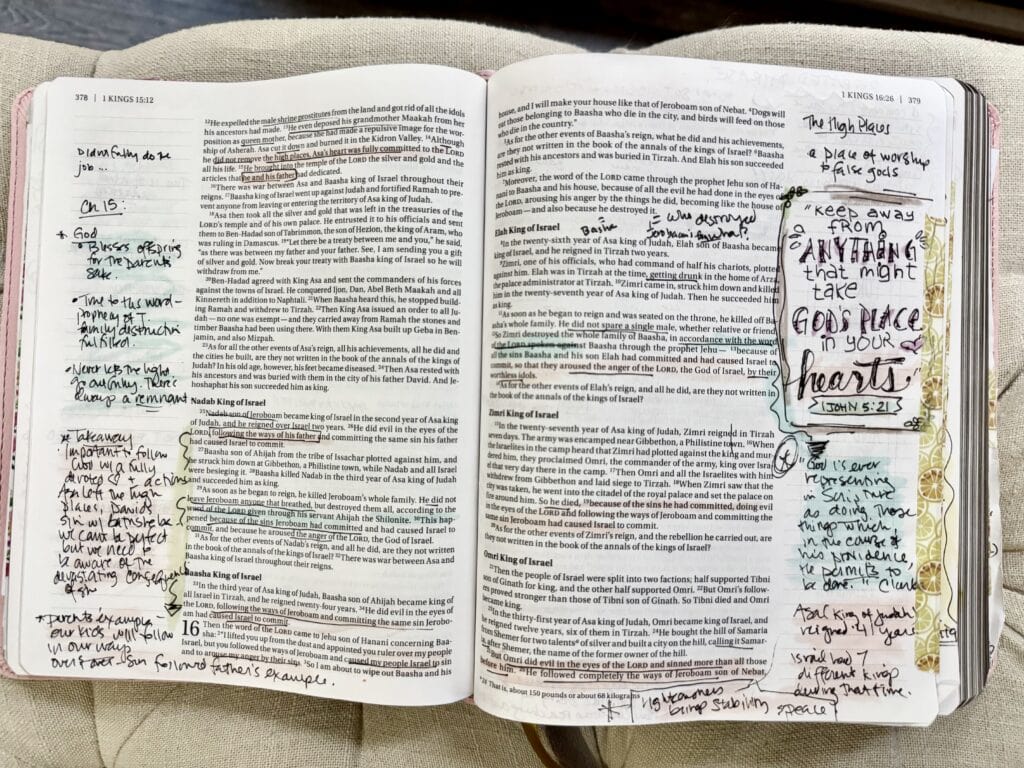 378 | 1 KINGS 15:12
12He expelled the male shrine prostitutes from the land and got rid of all the idols
his ancestors had made. 13He even deposed his grandmother Maakah from her
position as queen mother, because she had made a repulsive image for the wor-
ship of Asherah. Asa cut it down and burned it in the Kidron Valley. 14Although
he did not remove the high places, Asa's heart was fully committed to the LORD
all his life. 15He brought into the temple of the LORD the silver and gold and the
articles that he and his father had dedicated.
16There was war between Asa and Baasha king of Israel throughout their
reigns. 17Baasha king of Israel went up against Judah and fortified Ramah to pre-
vent anyone from leaving or entering the territory of Asa king of Judah.
18Asa then took all the silver and gold that was left in the treasuries of the
LORD's temple and of his own palace. He entrusted it to his officials and sent
them to Ben-Hadad son of Tabrimmon, the son of Hezion, the king of Aram, who
was ruling in Damascus. 19"Let there be a treaty between me and you," he said,
"as there was between my father and your father. See, I am sending you a gift
of silver and gold. Now break your treaty with Baasha king of Israel so he will
withdraw from me."
20Ben-Hadad agreed with King Asa and sent the commanders of his forces
against the towns of Israel. He conquered Ijon, Dan, Abel Beth Maakah and all
Kinnereth in addition to Naphtali. 21When Baasha heard this, he stopped build-
ing Ramah and withdrew to Tirzah. 22Then King Asa issued an order to all Ju-
dah — no one was exempt — and they carried away from Ramah the stones and
timber Baasha had been using there. With them King Asa built up Geba in Ben-
jamin, and also Mizpah.
23As for all the other events of Asa's reign, all his achievements, all he did and
the cities he built, are they not written in the book of the annals of the kings of
Judah? In his old age, however, his feet became diseased. 24Then Asa rested with
his ancestors and was buried with them in the city of his father David. And Je-
hoshaphat his son succeeded him as king.
Nadab King of Israel
25Nadab son of Jeroboam became king of Israel in the second year of Asa king
of Judah, and he reigned over Israel two years. 26He did evil in the eyes of the
LORD, following the ways of his father and committing the same sin his father
had caused Israel to commit.
27Baasha son of Ahijah from the tribe of Issachar plotted against him, and
he struck him down at Gibbethon, a Philistine town, while Nadab and all Israel
were besieging it. 28Baasha killed Nadab in the third year of Asa king of Judah
and succeeded him as king.
29As soon as he began to reign, he killed Jeroboam's whole family. He did not
leave Jeroboam anyone that breathed, but destroyed them all, according to the
word of the LORD given through his servant Ahijah the Shilonite. 30This hap-
pened because of the sins Jeroboam had committed and had caused Israel to
commit, and because he aroused the anger of the LORD, the God of Israel.
31As for the other events of Nadab's reign, and all he did, are they not written
in the book of the annals of the kings of Israel? 32There was war between Asa and
Baasha king of Israel throughout their reigns.
Baasha King of Israel
33In the third year of Asa king of Judah, Baasha son of Ahijah became king of
all Israel in Tirzah, and he reigned twenty-four years. 34He did evil in the eyes of
the LORD, following the ways of Jeroboam and committing the same sin Jerobo-
am had caused Israel to commit.
16 Then the word of the LORD came to Jehu son of Hanani concerning Baa-
sha: 2"I lifted you up from the dust and appointed you ruler over my people
Israel, but you followed the ways of Jeroboam and caused my people Israel to sin
and to arouse my anger by their sins. 3So I am about to wipe out Baasha and his
Didn't fully do the
job...
Ch 15:
* God
• Blesses offspring
for the parents
sake.
• True to his word—
prophecy of J.
family destruction
fulfilled.
• Never lets the light
go out fully. There's
always a remnant
* Takeaway
Important to follow
God w/ a fully
devoted ♡ + actions
Asa left the high
places, David's
sin w/ Bathsheba
we can't be perfect
but we need to
be aware of the
devastating consequences
of sin
* Parents' example—
our kids will follow
in our ways
over + over sin followed father's example.
1 KINGS 16:26 | 379
house, and I will make your house like that of Jeroboam son of Nebat. 4Dogs will
eat those belonging to Baasha who die in the city, and birds will feed on those
who die in the country."
5As for the other events of Baasha's reign, what he did and his achievements,
are they not written in the book of the annals of the kings of Israel? 6Baasha
rested with his ancestors and was buried in Tirzah. And Elah his son succeeded
him as king.
7Moreover, the word of the LORD came through the prophet Jehu son of Ha-
nani to Baasha and his house, because of all the evil he had done in the eyes of
the LORD, arousing his anger by the things he did, becoming like the house of
Jeroboam — and also because he destroyed it.
Elah King of Israel
8In the twenty-sixth year of Asa king of Judah, Elah son of Baasha became
king of Israel, and he reigned in Tirzah two years.
9Zimri, one of his officials, who had command of half his chariots, plotted
against him. Elah was in Tirzah at the time, getting drunk in the home of Arza,
the palace administrator at Tirzah. 10Zimri came in, struck him down and killed
him in the twenty-seventh year of Asa king of Judah. Then he succeeded him
as king.
11As soon as he began to reign and was seated on the throne, he killed off Baa-
sha's whole family. He did not spare a single male, whether relative or friend.
12So Zimri destroyed the whole family of Baasha, in accordance with the word
of the LORD spoken against Baasha through the prophet Jehu — 13because of
all the sins Baasha and his son Elah had committed and had caused Israel to
commit, so that they aroused the anger of the LORD, the God of Israel, by their
worthless idols.
14As for the other events of Elah's reign, and all he did, are they not written in
the book of the annals of the kings of Israel?
Zimri King of Israel
15In the twenty-seventh year of Asa king of Judah, Zimri reigned in Tirzah
seven days. The army was encamped near Gibbethon, a Philistine town. 16When
the Israelites in the camp heard that Zimri had plotted against the king and mur-
dered him, they proclaimed Omri, the commander of the army, king over Israel
that very day there in the camp. 17Then Omri and all the Israelites with him
withdrew from Gibbethon and laid siege to Tirzah. 18When Zimri saw that the
city was taken, he went into the citadel of the royal palace and set the palace on
fire around him. So he died, 19because of the sins he had committed, doing evil
in the eyes of the LORD and following the ways of Jeroboam and committing the
same sin Jeroboam had caused Israel to commit.
20As for the other events of Zimri's reign, and the rebellion he carried out, are
they not written in the book of the annals of the kings of Israel?
Omri King of Israel
21Then the people of Israel were split into two factions; half supported Tibni
son of Ginath for king, and the other half supported Omri. 22But Omri's follow-
ers proved stronger than those of Tibni son of Ginath. So Tibni died and Omri
became king.
23In the thirty-first year of Asa king of Judah, Omri became king of Israel, and
he reigned twelve years, six of them in Tirzah. 24He bought the hill of Samaria
from Shemer for two talents of silver and built a city on the hill, calling it Samar-
ia, after Shemer, the name of the former owner of the hill.
25But Omri did evil in the eyes of the LORD and sinned more than all those
before him. 26He followed completely the ways of Jeroboam son of Nebat,
24 That is, about 150 pounds or about 68 kilograms
Basha
= who destroyed
Jeroboam
righteousness
brings stability + peace
The High Places
a place of worship
to false gods
"KEEP AWAY
FROM
ANYTHING
that might
take
GOD'S PLACE
IN YOUR
hearts."
1 JOHN 5:21
"God is ever
representing
in Scripture
as doing those
things which,
in the course of
his providence
He permits to
be done." Clarke
Asa king of Judah
reigned 41 years
Israel had 7
different kings
during that time.